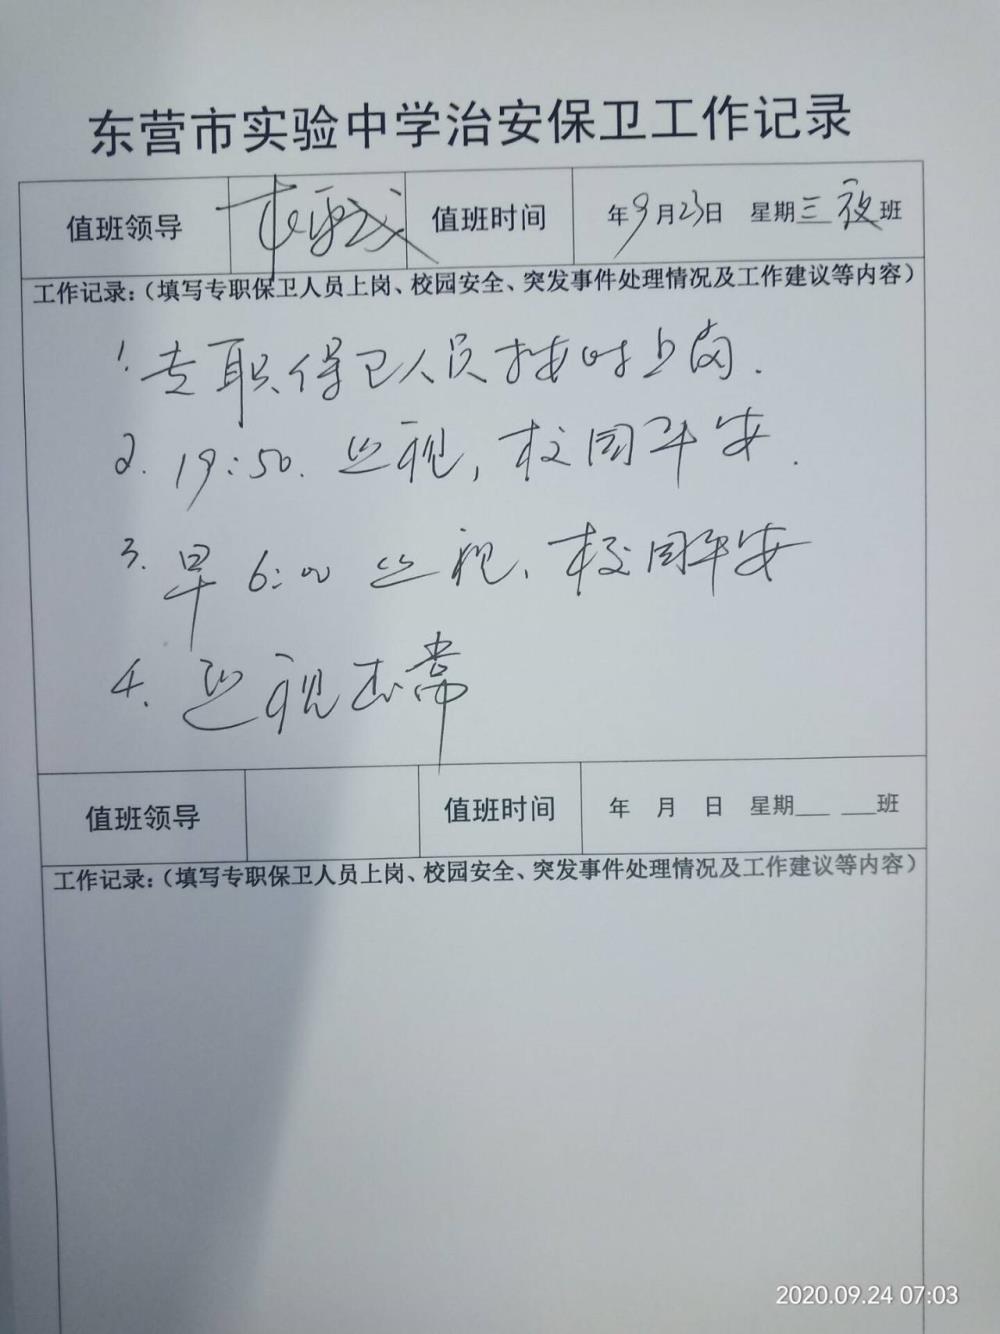 东营市实验中学治安保卫工作记录
值班领导 值班时间 年9月23日 星期三 夜班
工作记录:(填写专职保卫人员上岗、校园安全、突发事件处理情况及工作建议等内容)
1. 专职保卫人员按时上岗.
2. 19:50. 巡视, 校园平安.
3. 早6:00 巡视, 校园平安
4. 巡视正常
值班领导 值班时间 年 月 日 星期___ ___班
工作记录:(填写专职保卫人员上岗、校园安全、突发事件处理情况及工作建议等内容)
2020.09.24 07:03